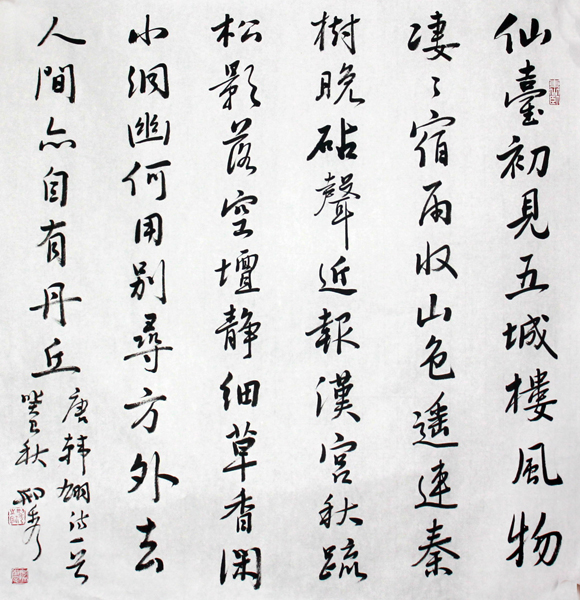 仙臺初見五城樓風物
凄〻宿雨收山色遥連秦
樹晚砧聲近報漢宫秋疏
松影落空壇静细草香闲
小洞幽何用别尋方外去
人間亦自有丹丘
唐韩翃诗一首
癸巳秋